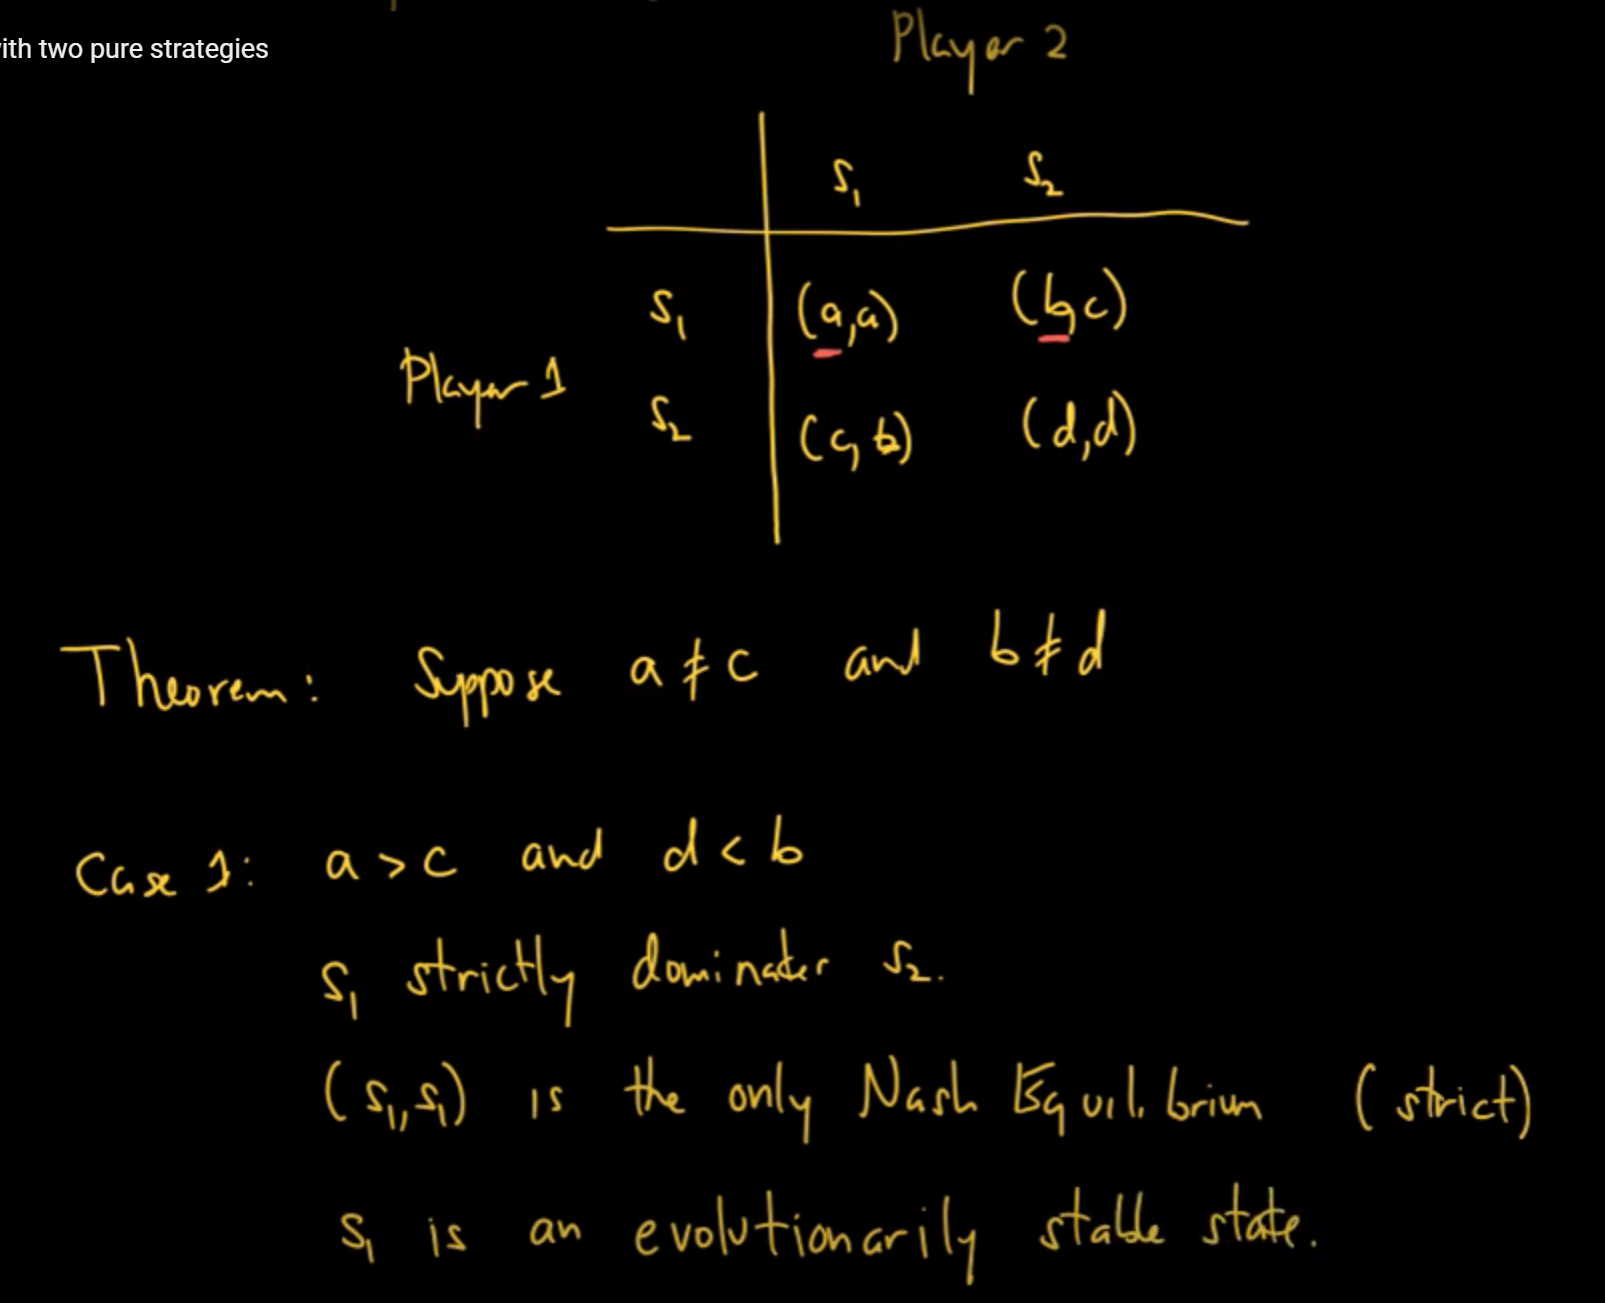 Player 2
ith two pure strategies
S₁ S₂
S₁ (a,a) (b,c)
Player 1
S₂ (c,b) (d,d)
Theorem: Suppose a ≠ c and b ≠ d
Case 1: a > c and d < b
S₁ strictly dominates S₂.
(S₁,S₁) is the only Nash Equilibrium (strict)
S₁ is an evolutionarily stable state.